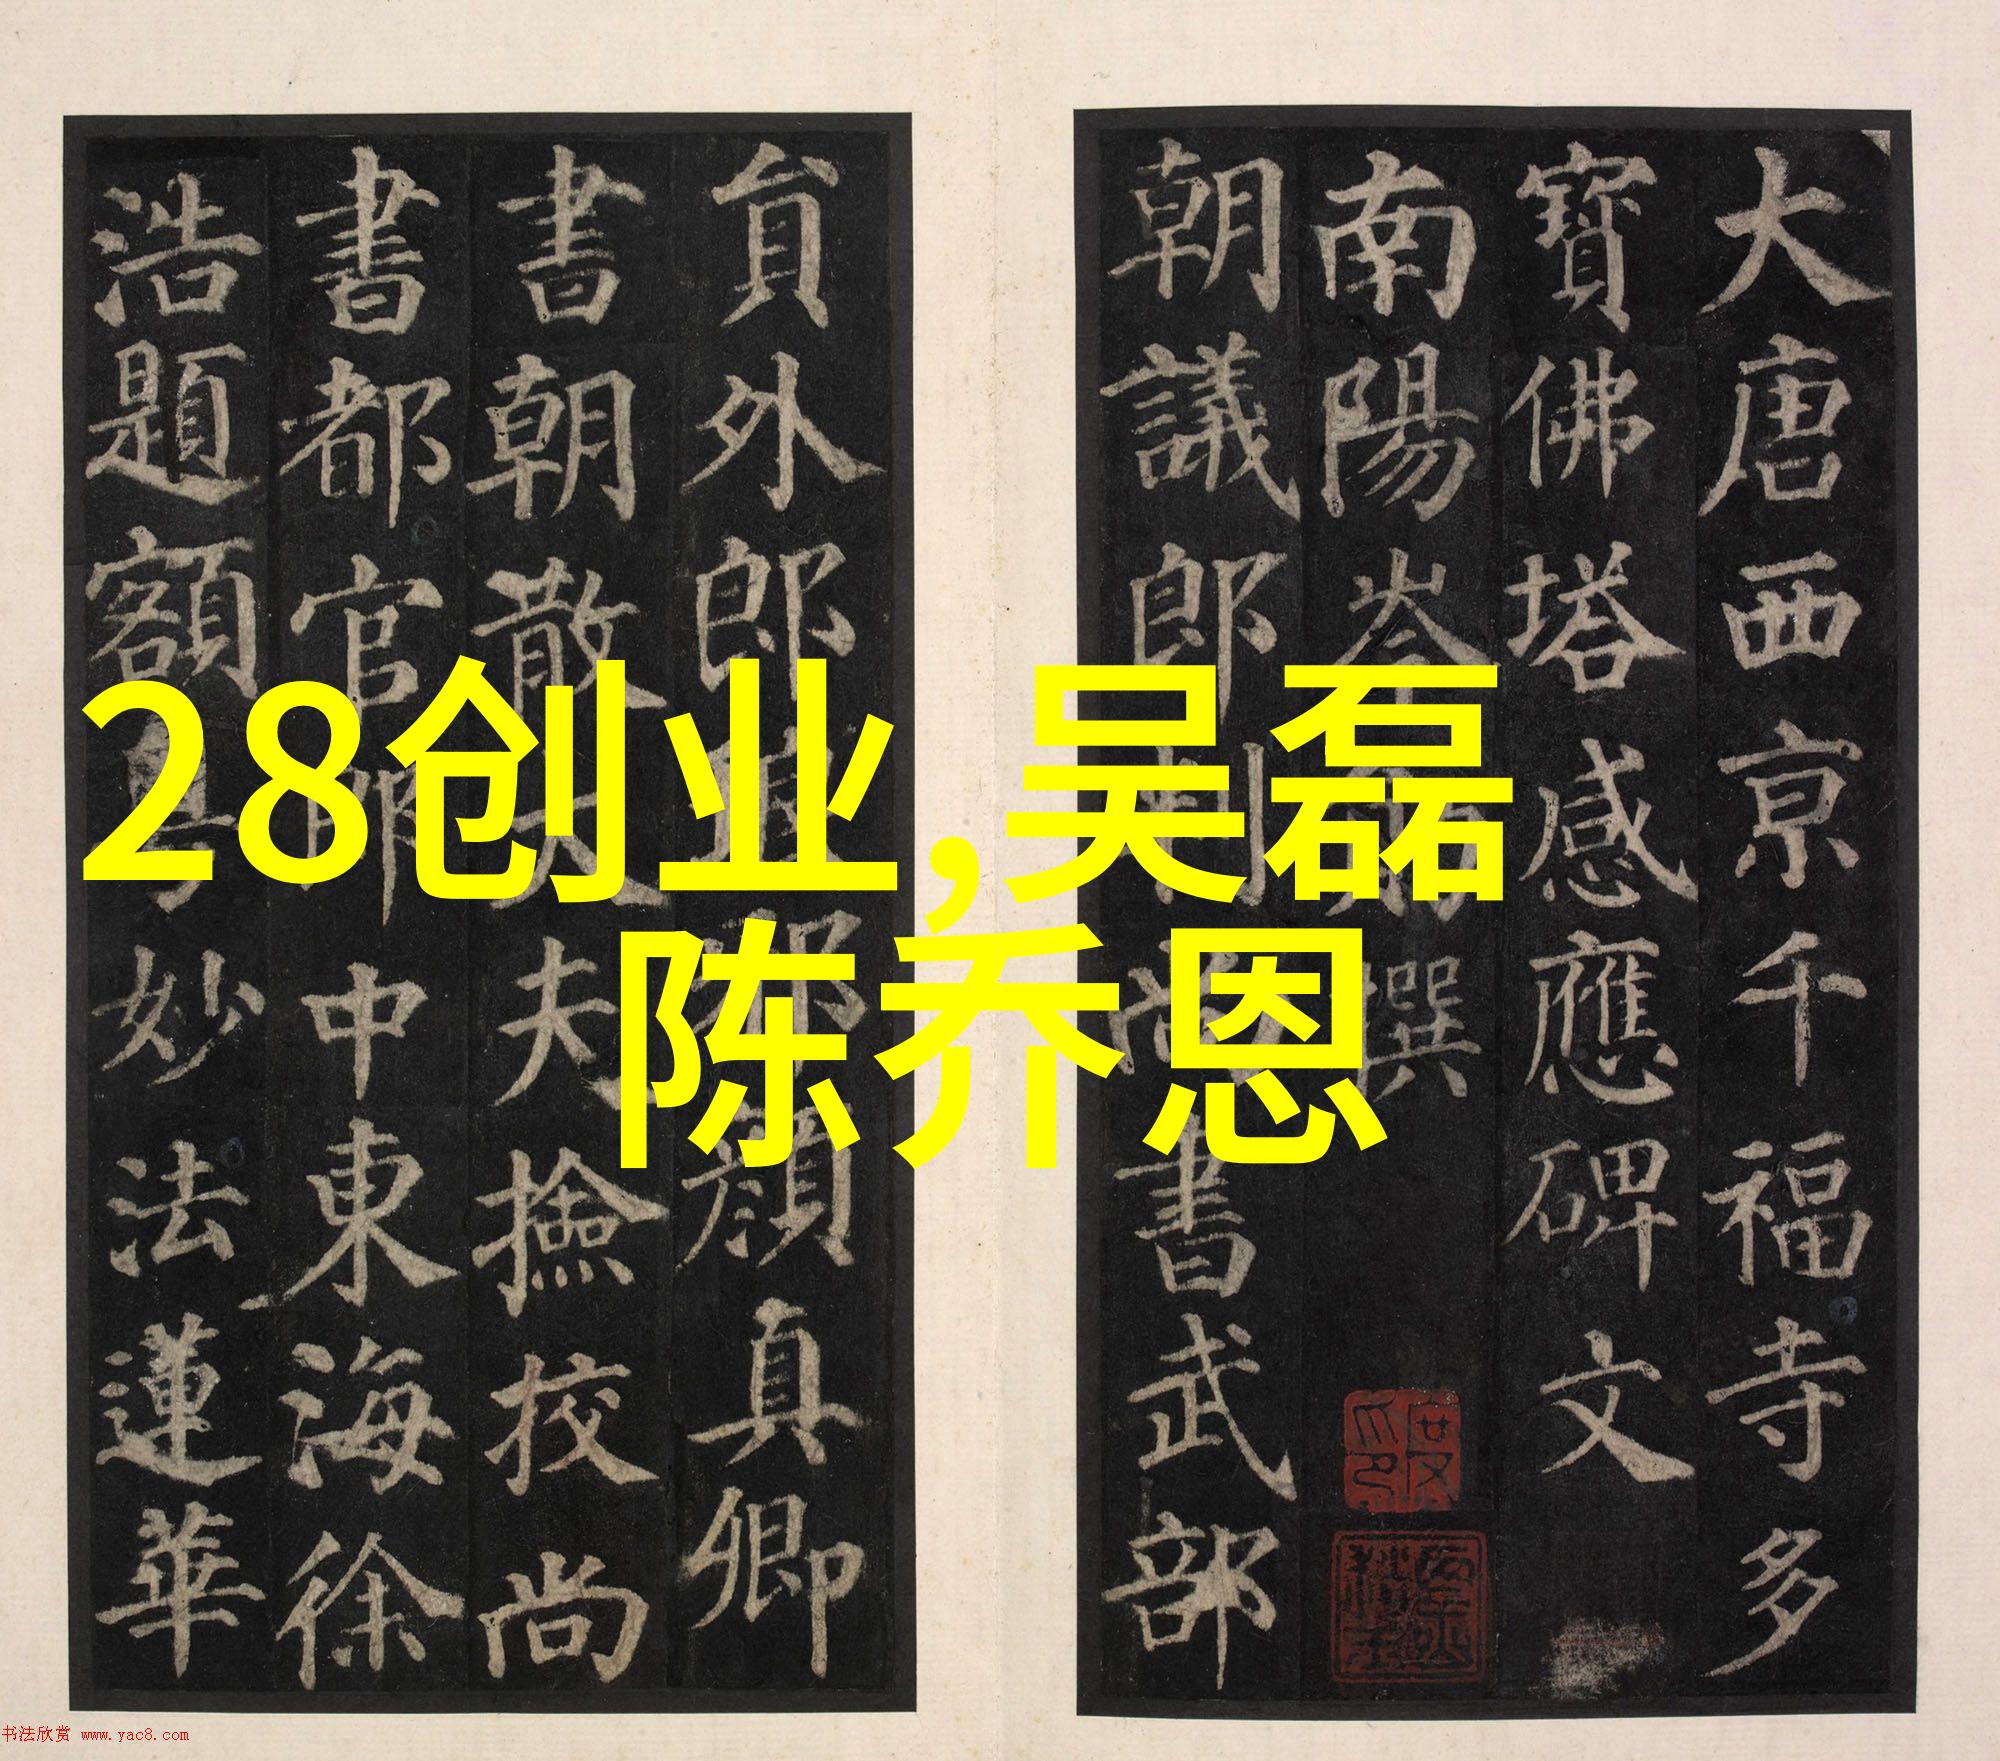 大唐西京千福寺多
寶佛塔感應碑文
南陽岑勛撰
朝議郎判尚書武部
貟外郎琅邪顔真卿
書朝散大夫撿校尚
書都官郎中東海徐
浩題額粤妙法蓮華
28创业,吴磊
陈乔恩
书法欣赏 www.yac8.com